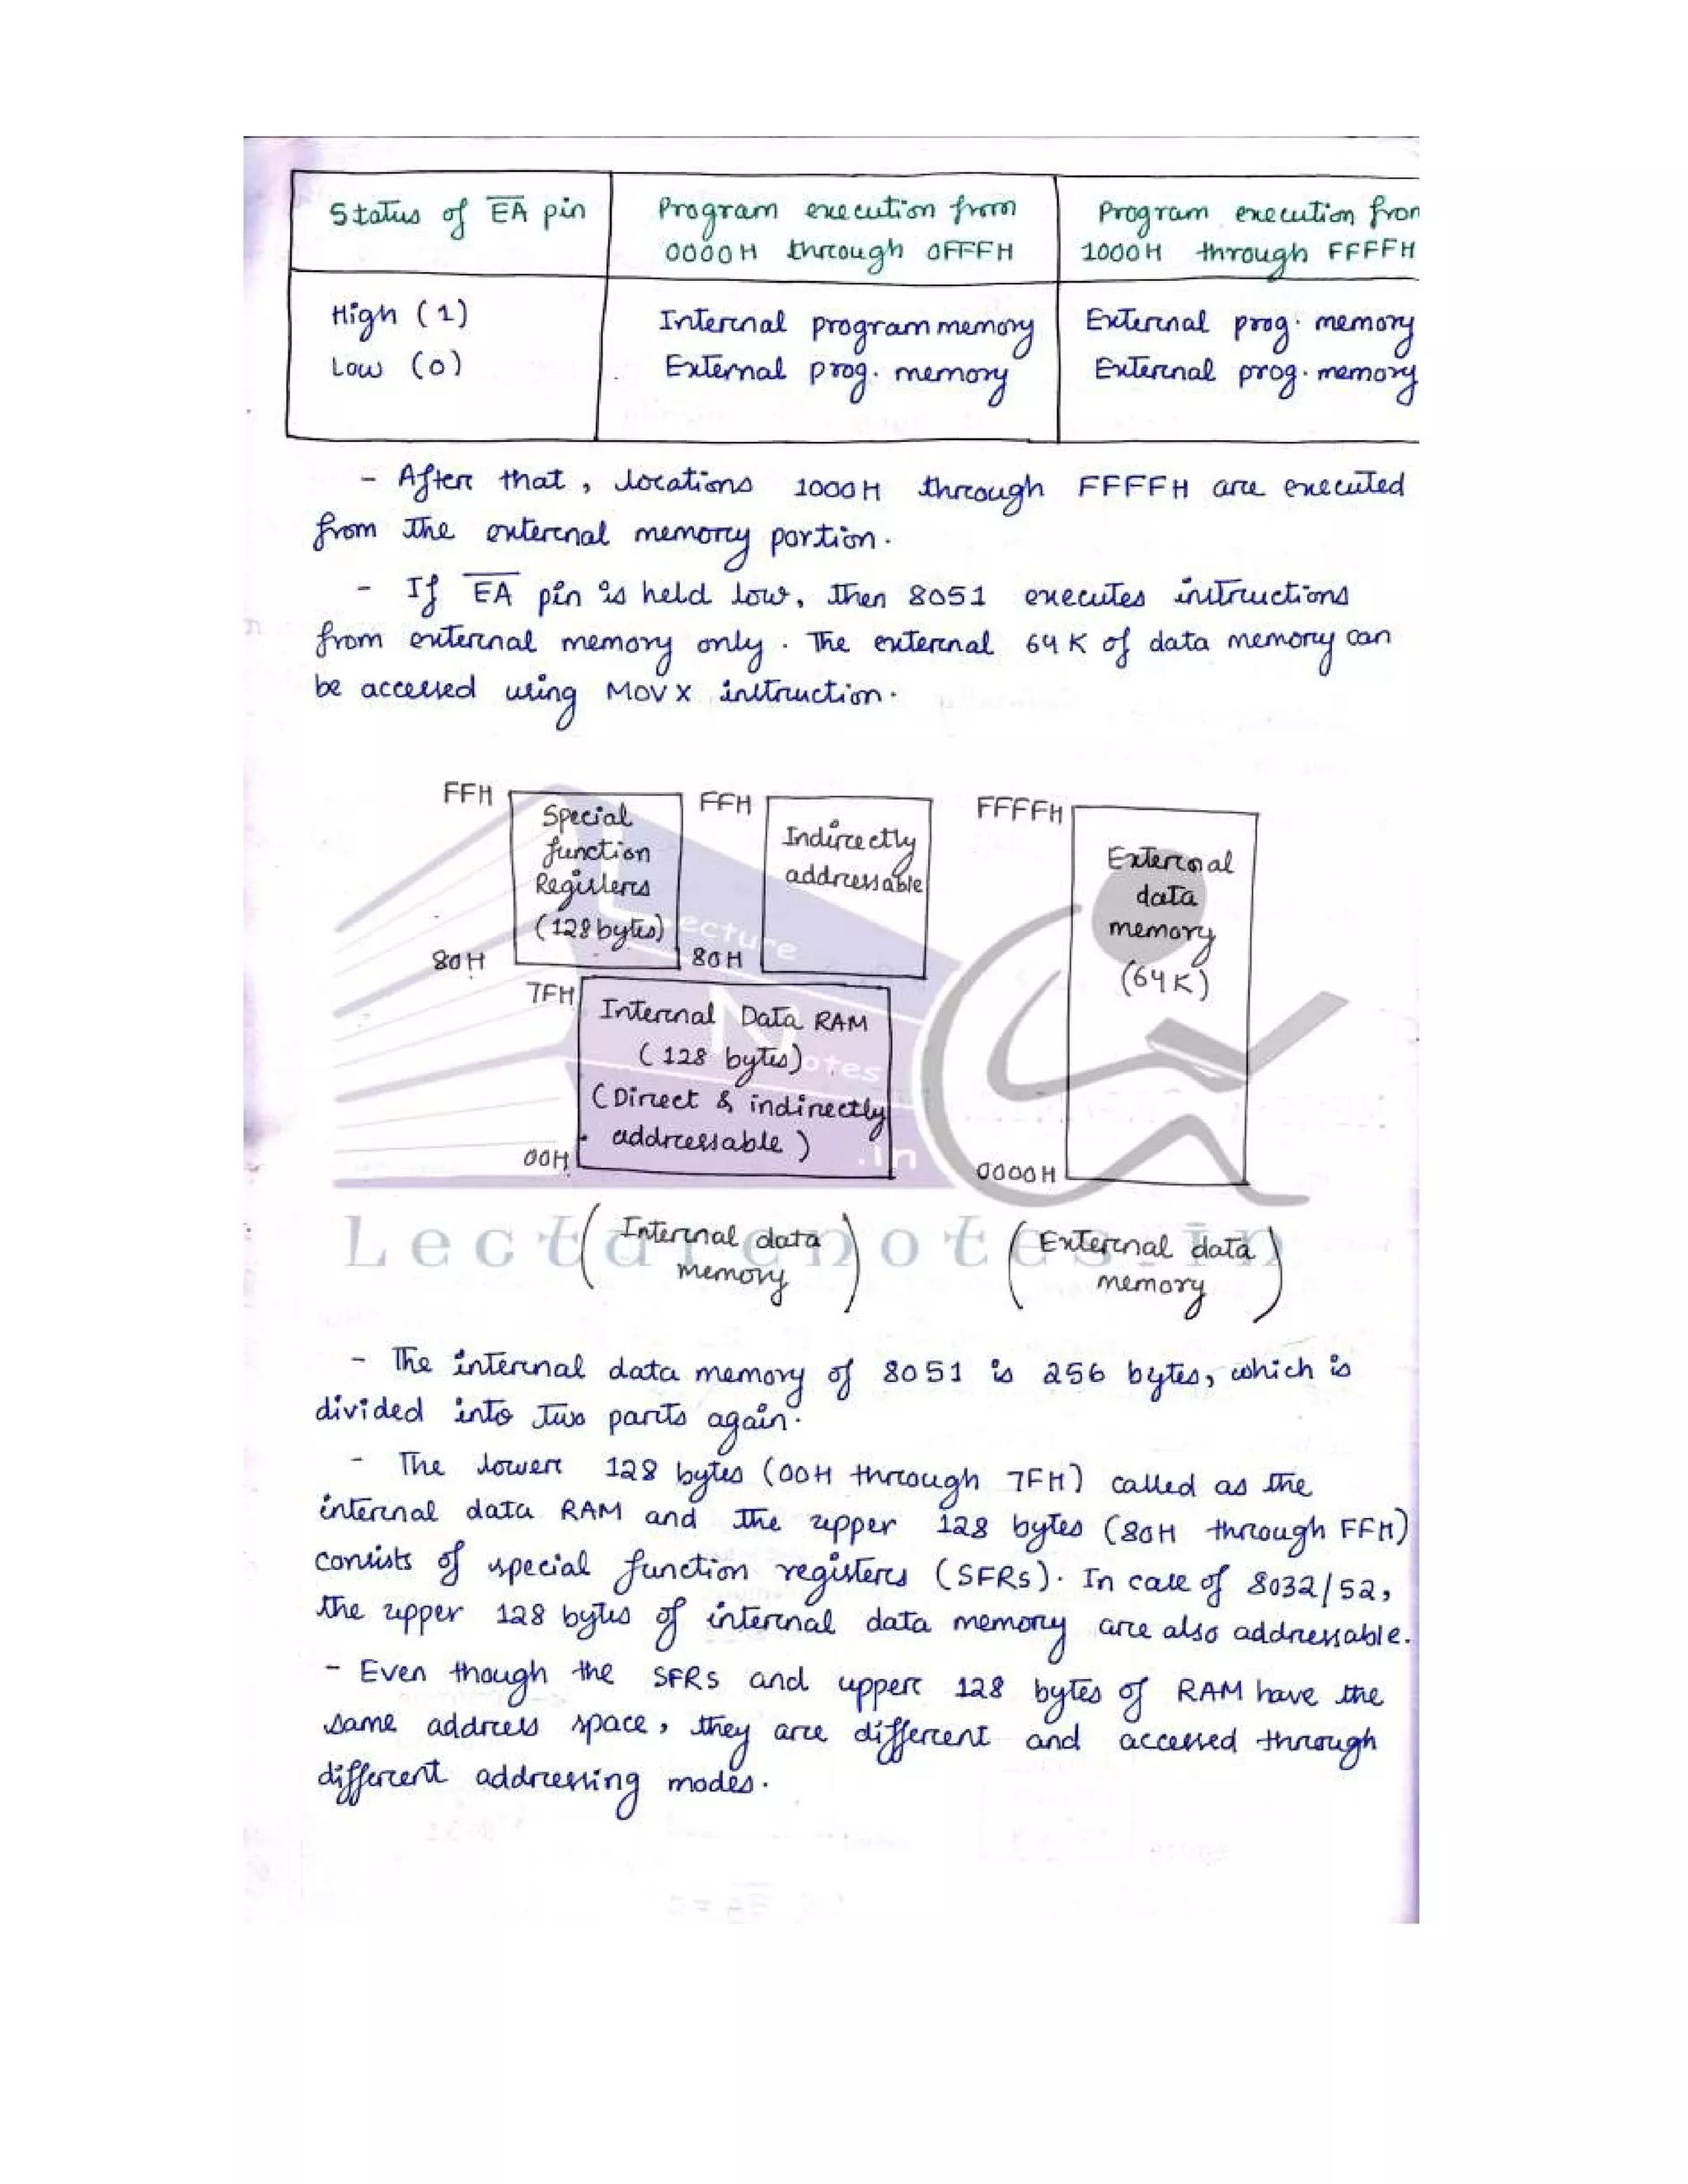 Status of E̅A̅ pin
Program execution from
0000H through 0FFFH
Program execution from
1000H through FFFFH
High (1)
Internal program memory
External prog. memory
Low (0)
External prog. memory
External prog. memory
- After that, locations 1000H through FFFFH are executed
from the external memory portion.
- If E̅A̅ pin is held low, then 8051 executes instructions
from external memory only. The external 64K of data memory can
be accessed using MOVX instruction.
FFH
Special
function
Registers
(128 bytes)
80H
FFH
Indirectly
addressable
80H
7FH
Internal Data RAM
(128 bytes)
(Direct & indirectly
addressable)
00H
FFFFH
External
data
memory
(64K)
0000H
(Internal data
memory)
(External data
memory)
Lecture
Notes
.in
Lecturenotes.in
- The internal data memory of 8051 is 256 bytes, which is
divided into two parts again.
- The lower 128 bytes (00H through 7FH) called as the
internal data RAM and the upper 128 bytes (80H through FFH)
consists of special function registers (SFRs). In case of 8032/52,
the upper 128 bytes of internal data memory are also addressable.
- Even though the SFRs and upper 128 bytes of RAM have the
same address space, they are different and accessed through
different addressing modes.